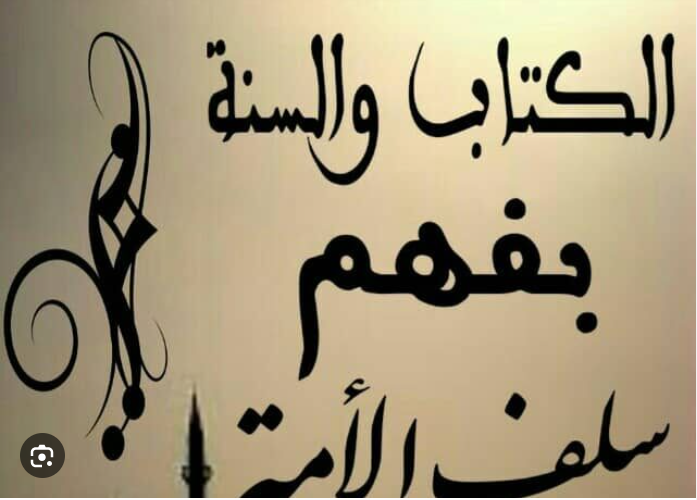 الكتاب والسنة
بفهم
سلف الأمة